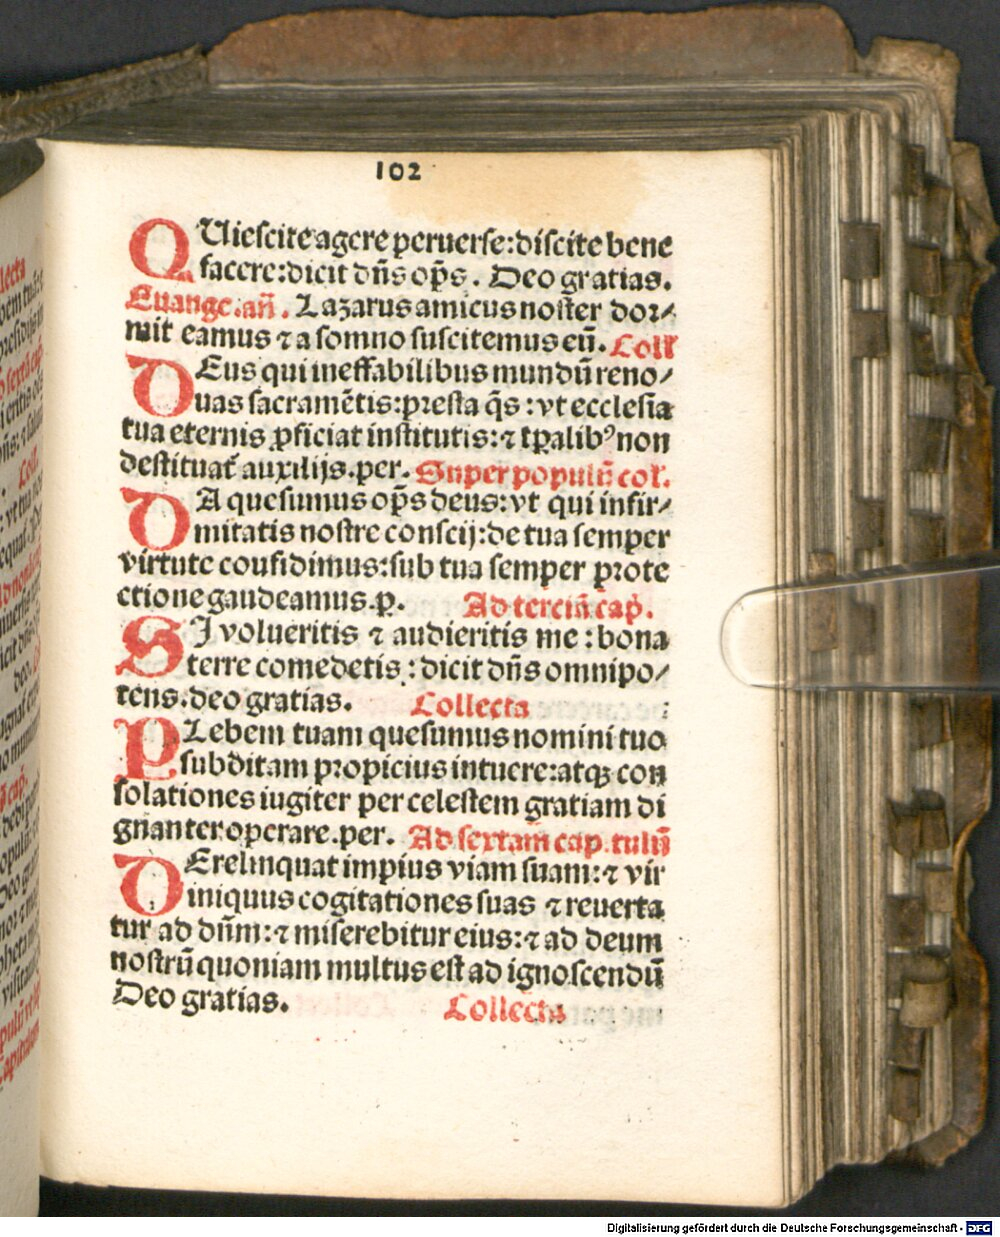 102
QUiescite agere peruerse: discite bene
facere: dicit dn̄s op̄s. Deo gratias.
Euange. an̄. Lazarus amicus noster dor⸗
mit eamus ⁊ a somno suscitemus eū. Coll
DEus qui ineffabilibus mundū reno⸗
uas sacramētis: presta q̄s: vt ecclesia
tua eternis ꝓficiat institutis: ⁊ tp̄alibꝰ non
destituat᷑ auxilijs. per. Super populū col.
DA quesumus op̄s deus: vt qui infir⸗
mitatis nostre conscij: de tua semper
virtute confidimus: sub tua semper prote
ctione gaudeamus. p. Ad terciā cap.
SI volueritis ⁊ audieritis me: bona
terre comedetis: dicit dn̄s omnipo⸗
tens. deo gratias. Collecta
PLebem tuam quesumus nomini tuo
subditam propicius intuere: atqꝫ con
solationes iugiter per celestem gratiam di
gnanter operare. per. Ad sextam cap.
DErelinquat impius viam suam: ⁊ vir
iniquus cogitationes suas ⁊ reuerta
tur ad dn̄m: ⁊ miserebitur eius: ⁊ ad deum
nostrū quoniam multus est ad ignoscendū
Deo gratias. Collecta
Digitalisierung gefördert durch die Deutsche Forschungsgemeinschaft - DFG